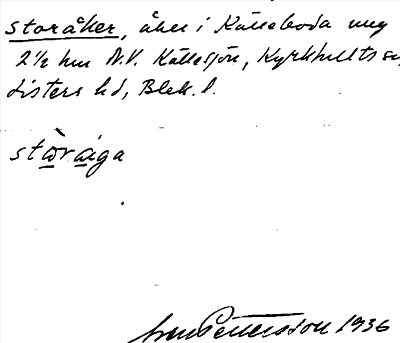 storåker, åker i Källeboda meg
2½ km N.V. Källesjön, Kyrkhults sn,
Listers hd, Blek. l.
stòraiga
Pettersson 1936